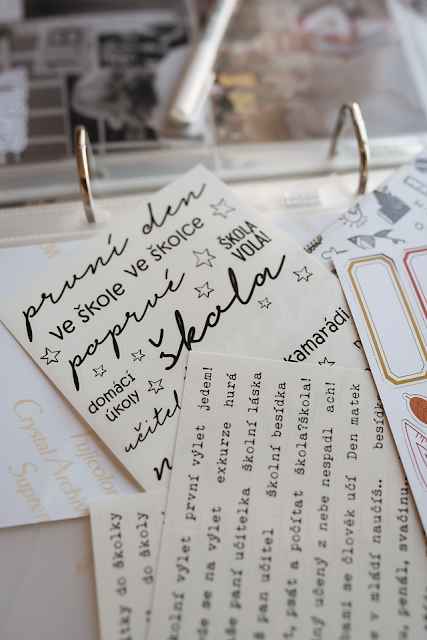 první den
ve škole ve školce
poprvé
ŠKOLA
VOLÁ!
škola
kamarádi
domácí
úkoly
učitel
jedem!
první výlet
školní výlet
hurá
exkurze
jde se na výlet
školní láska
paní učitelka
školní besídka
pan učitel
škola?škola!
psát a počítat
ach!
učený z nebe nespadl
Den matek
se člověk učí
besíd
v mládí naučíš..
penál, svačinu..
do školky
do školy
Fujicolor
Crystal Archive
Supreme